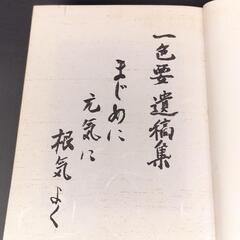 一色要遺稿集
まじめに
元気に
根気よく